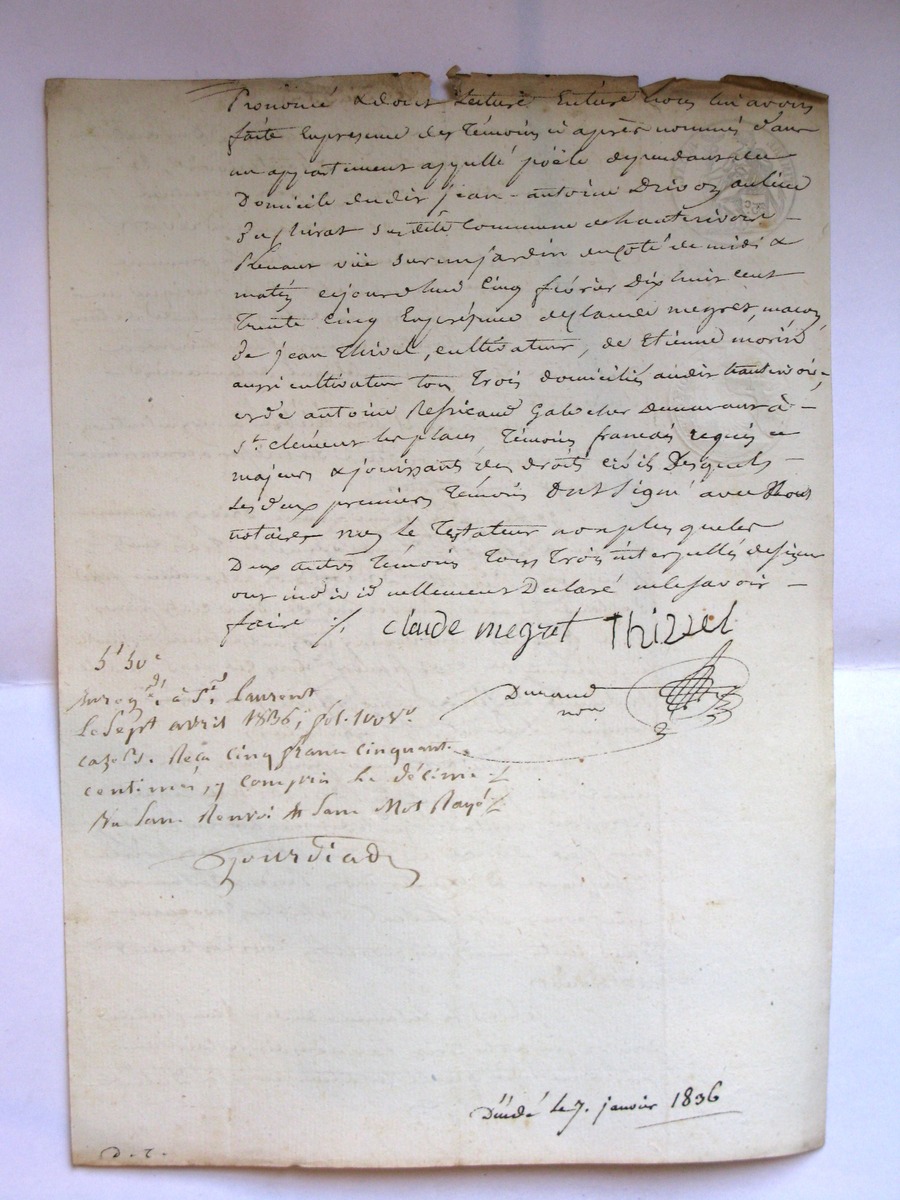 Prononcé & dont Lecture Entière nous lui avons
faite Enpresence des Témoins ci après nommés dans
un appartement appellé poële dependant du
Domicile dudit jean-antoine Drivon au lieu
commune de hauterivoire -
Prenant vüe sur un jardin du coté de midi &
matin cejourdhui Cinq fevrier Dix huit cent
Trente Cinq Enprésence de Claude megret, maçon,
de jean Thivel, cultivateur, de Etienne
aussi cultivateur tous Trois domiciliés audit hauterivoire,
et de antoine Galocher Demeurant à -
St. clément les places, Témoins francais requis
majeurs & jouissants des droits civils Desquels -
Les deux premiers Témoins ont Signé avec Nous
notaire non le Testateur non plus que les
Deux autres Témoins Tous Trois interpellés de signer
ont individuellement Declaré ne le savoir -
faire ./. Claude megret Thizzel
5f 50c
Durand
nore
Enregt. à St. Laurent
Le Sept avril 1836, fol. 100 vo.
case . Reçu Cinq francs cinquante
centimes, y compris le décime
Sans Renvoi & Sans Mot Rayé
Décédé le 7. janvier 1836
D. T.